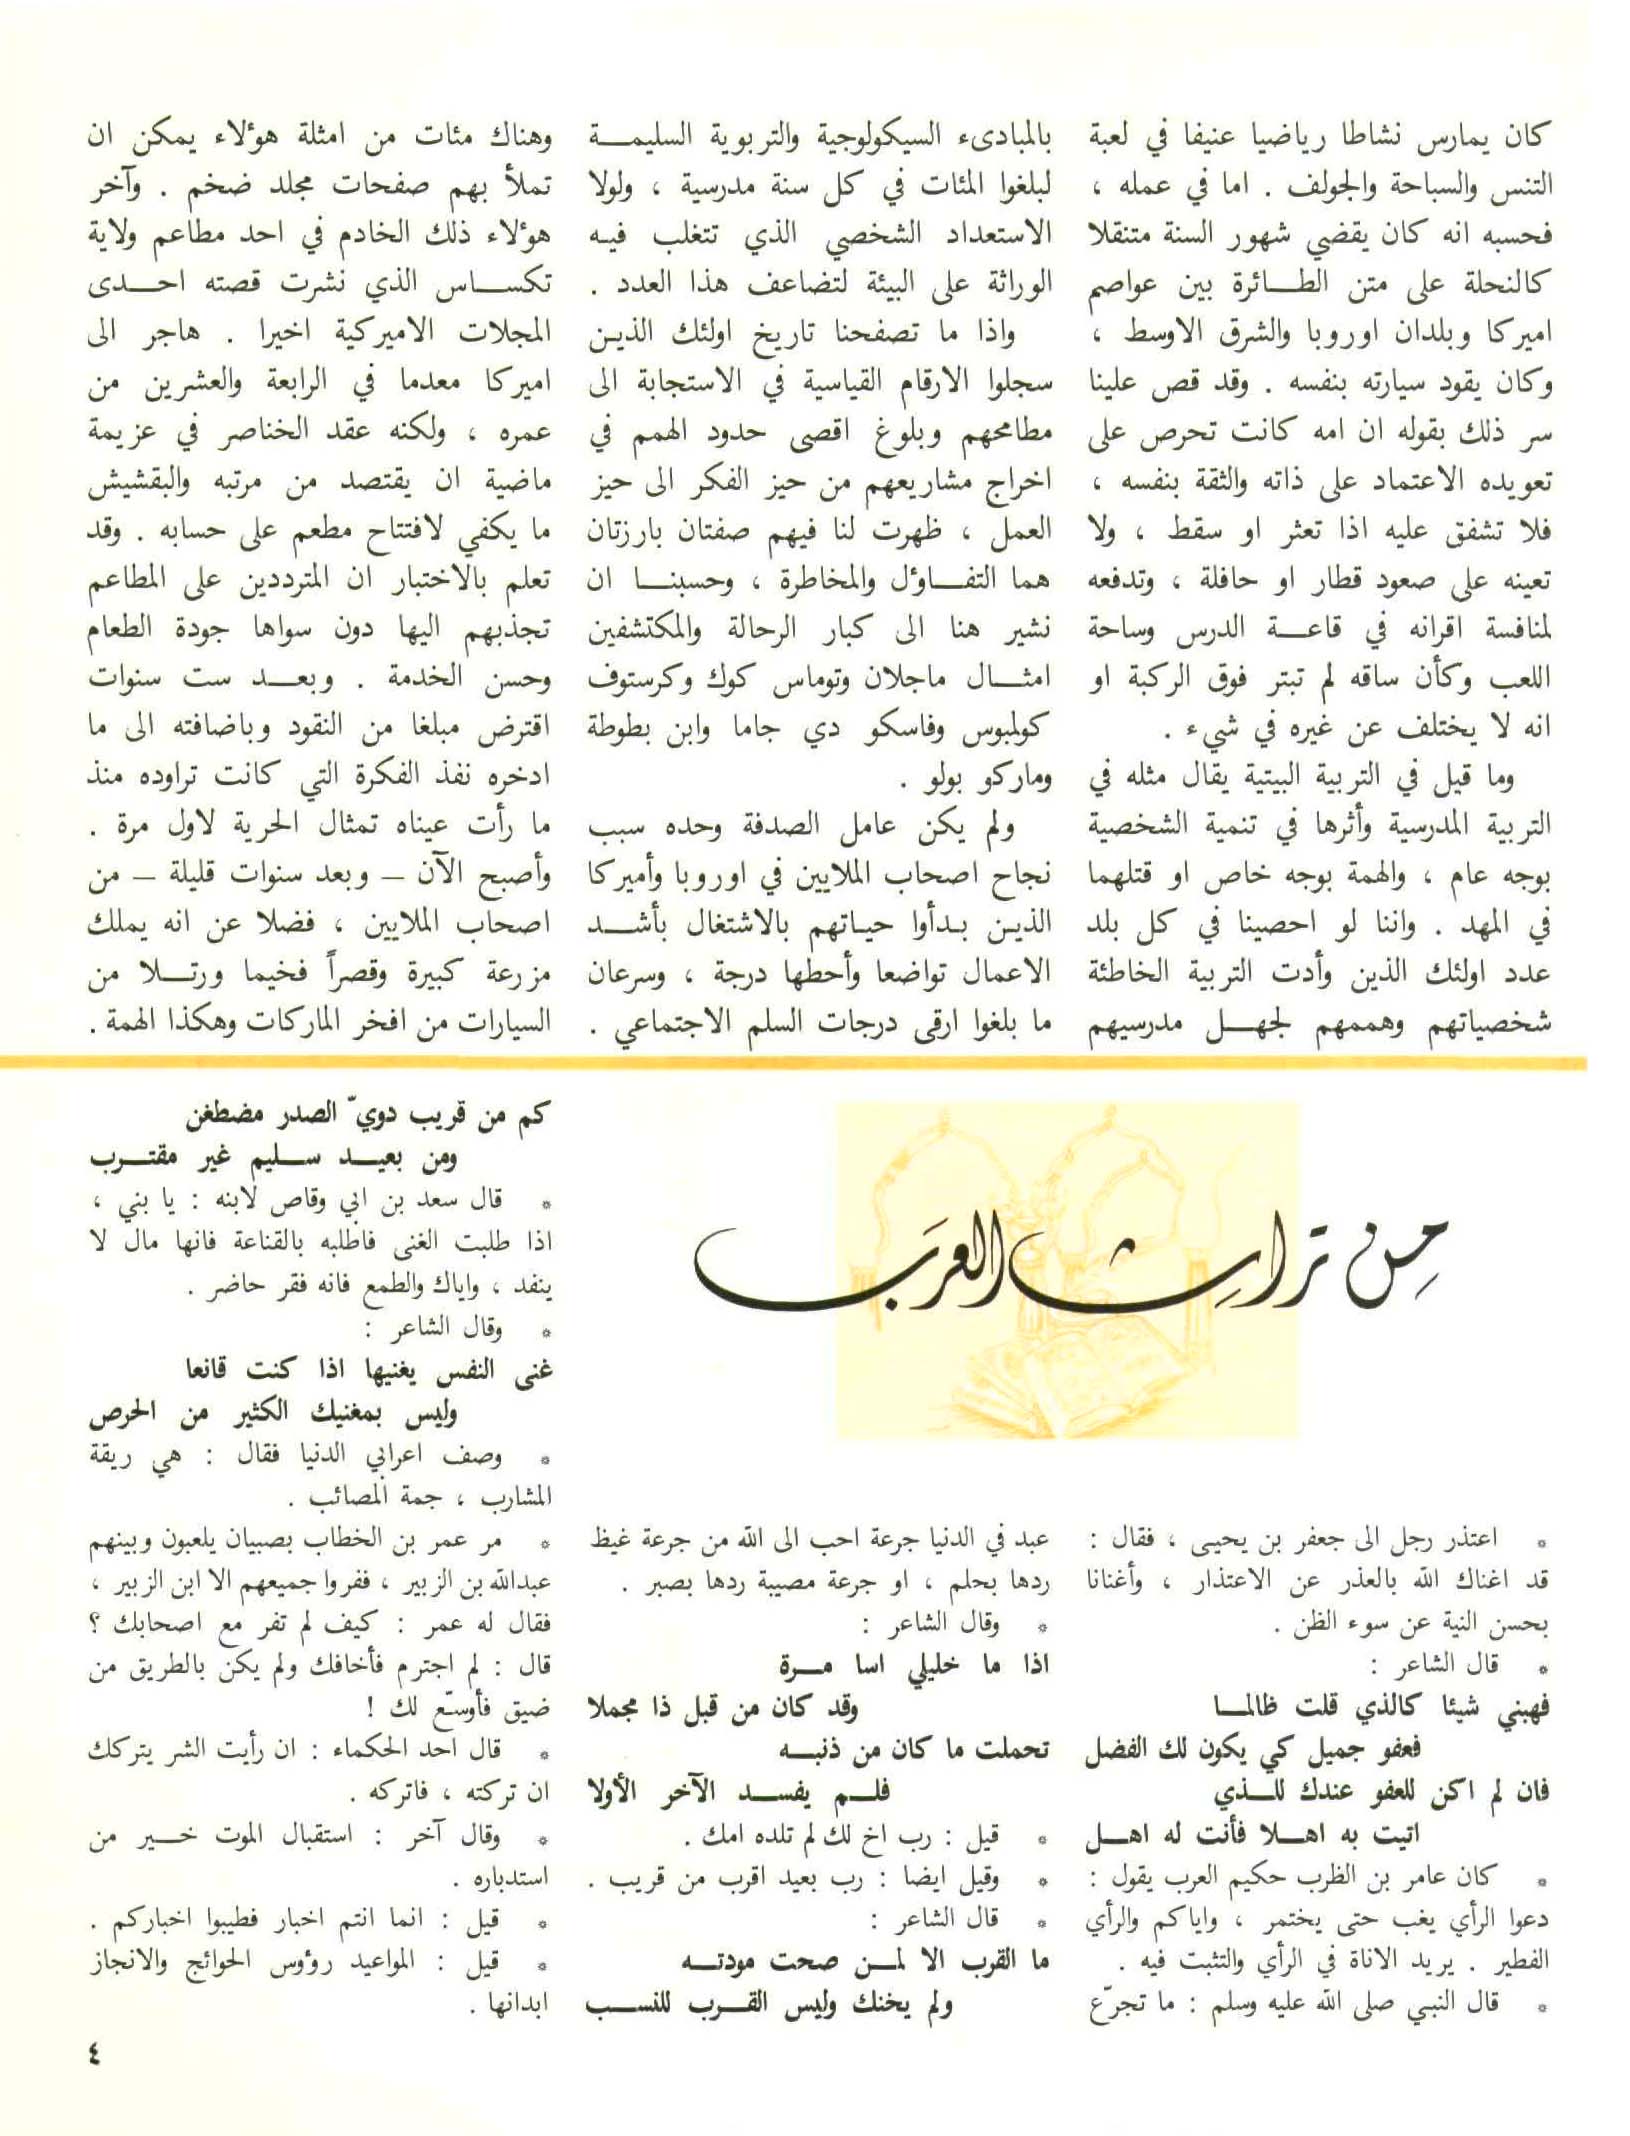 كان يمارس نشاطا رياضيا عنيفا في لعبة
التنس والسباحة والجولف . اما في عمله ،
فحسبه انه كان يقضي شهور السنة متنقلا
كالنحلة على متن الطـــائرة بين عواصم
اميركا وبلدان اوروبا والشرق الاوسط ،
وكان يقود سيارته بنفسه . وقد قص علينا
سر ذلك بقوله ان امه كانت تحرص على
تعويده الاعتماد على ذاته والثقة بنفسه ،
فلا تشفق عليه اذا تعثر او سقط ، ولا
تعينه على صعود قطار او حافلة ، وتدفعه
لمنافسة اقرانه في قاعـــة الدرس وساحة
اللعب وكأن ساقه لم تبتر فوق الركبة او
انه لا يختلف عن غيره في شيء .
وما قيل في التربية البيتية يقال مثله في
التربية المدرسية وأثرها في تنمية الشخصية
بوجه عام ، والهمة بوجه خاص او قتلهما
في المهد . واننا لو احصينا في كل بلد
عدد اولئك الذين وأدت التربية الخاطئة
شخصياتهم وهممهم لجهـــل مدرسيهم
بالمبادىء السيكولوجية والتربوية السليمـــة
لبلغوا المئات في كل سنة مدرسية ، ولولا
الاستعداد الشخصي الذي تتغلب فيـه
الوراثة على البيئة لتضاعف هذا العدد .
واذا ما تصفحنا تاريخ اولئك الذيـن
سجلوا الارقام القياسية في الاستجابة الى
مطامحهم وبلوغ اقصى حدود الهمم في
اخراج مشاريعهم من حيز الفكر الى حيز
العمل ، ظهرت لنا فيهم صفتان بارزتان
هما التفـــاؤل والمخاطرة ، وحسبنـــا ان
نشير هنا الى كبار الرحالة والمكتشفين
امثـــال ماجلان وتوماس كوك وكرستوف
كولمبوس وفاسكو دي جاما وابن بطوطة
وماركو بولو .
ولم يكن عامل الصدفة وحده سبب
نجاح اصحاب الملايين في اوروبا وأميركا
الذيـن بـدأوا حيـاتهم بالاشتغال بأشـــد
الاعمال تواضعا وأحطها درجة ، وسرعان
ما بلغوا ارقى درجات السلم الاجتماعي .
وهناك مئات من امثلة هؤلاء يمكن ان
تملأ بهم صفحات مجلد ضخم . وآخر
هؤلاء ذلك الخادم في احد مطاعم ولاية
تكســـاس الذي نشرت قصته احـــدى
المجلات الاميركية اخيرا . هاجر الى
اميركا معدما في الرابعة والعشرين من
عمره ، ولكنه عقد الخناصر في عزيمة
ماضية ان يقتصد من مرتبه والبقشيش
ما يكفي لافتتاح مطعم على حسابه . وقد
تعلم بالاختبار ان المترددين على المطاعم
تجذبهم اليها دون سواها جودة الطعام
وحسن الخدمة . وبعـــد ست سنوات
اقترض مبلغا من النقود وباضافته الى ما
ادخره نفذ الفكرة التي كانت تراوده منذ
ما رأت عيناه تمثال الحرية لاول مرة .
وأصبح الآن — وبعد سنوات قليلة — من
اصحاب الملايين ، فضلا عن انه يملك
مزرعة كبيرة وقصراً فخيما ورتـــلا من
السيارات من افخر الماركات وهكذا الهمة .
من تراث العرب
* اعتذر رجل الى جعفر بن يحيـى ، فقال :
قد اغناك الله بالعذر عن الاعتذار ، وأغنانا
بحسن النية عن سوء الظن .
* قال الشاعر :
فهبني شيئا كالذي قلت ظالمـــا
فعفو جميل كي يكون لك الفضل
فان لم اكن للعفو عندك للـــذي
اتيت به اهـــلا فأنت له اهـــل
* كان عامر بن الظرب حكيم العرب يقول :
دعوا الرأي يغب حتى يختمر ، واياكم والرأي
الفطير . يريد الاناة في الرأي والتثبت فيه .
* قال النبـي صلى الله عليه وسلم : ما تجرّع
عبد في الدنيا جرعة احب الى الله من جرعة غيظ
ردها بحلم ، او جرعة مصيبة ردها بصبر .
* وقال الشاعر :
اذا ما خليلي اسا مـــرة
وقد كان من قبل ذا مجملا
تحملت ما كان من ذنبـــه
فلـــم يفســـد الآخر الأولا
* قيل : رب اخ لك لم تلده امك .
* وقيل ايضا : رب بعيد اقرب من قريب .
* قال الشاعر :
ما القرب الا لمـــن صحت مودتـــه
ولم يخنك وليس القـــرب للنســـب
كم من قريب دويّ الصدر مضطغن
ومن بعيـــد ســـليم غير مقتـــرب
* قال سعد بن ابي وقاص لابنه : يا بني ،
اذا طلبت الغنى فاطلبه بالقناعة فانها مال لا
ينفد ، واياك والطمع فانه فقر حاضر .
* وقال الشاعر :
غنى النفس يغنيها اذا كنت قانعا
وليس بمغنيك الكثير من الحرص
* وصف اعرابي الدنيا فقال : هي ريقة
المشارب ، جمة المصائب .
* مر عمر بن الخطاب بصبيان يلعبون وبينهم
عبدالله بن الزبير ، ففروا جميعهم الا ابن الزبير ،
فقال له عمر : كيف لم تفر مع اصحابك ؟
قال : لم اجترم فأخافك ولم يكن بالطريق من
ضيق فأوسّع لك !
* قال احد الحكماء : ان رأيت الشر يتركك
ان تركته ، فاتركه .
* وقال آخر : استقبال الموت خـــير من
استدباره .
* قيل : انما انتم اخبار فطيبوا اخباركم .
* قيل : المواعيد رؤوس الحوائج والانجاز
ابدانها .
٤